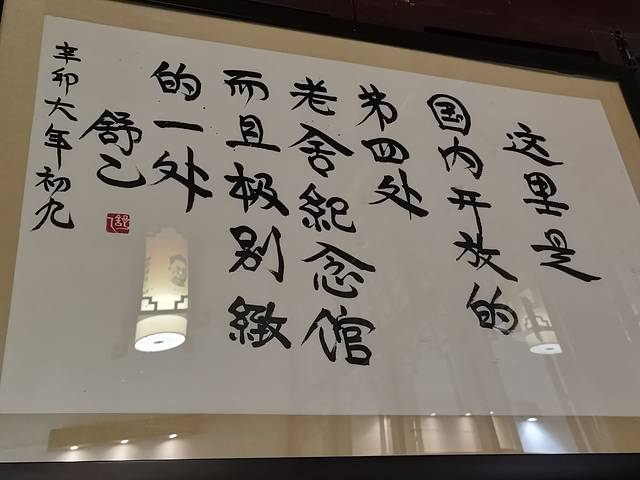 这里是
国内开放的
第四处
老舍纪念馆
而且极别緻
的一处
舒乙
辛卯大年初九